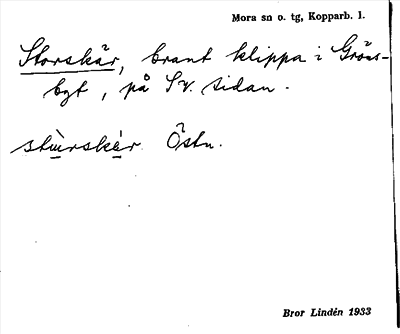 Mora sn o. tg, Kopparb. l.
Storskär, brant klippa i Gröns-
byt, på Sv. sidan.
stùrskèr Östn.
Bror Lindén 1933